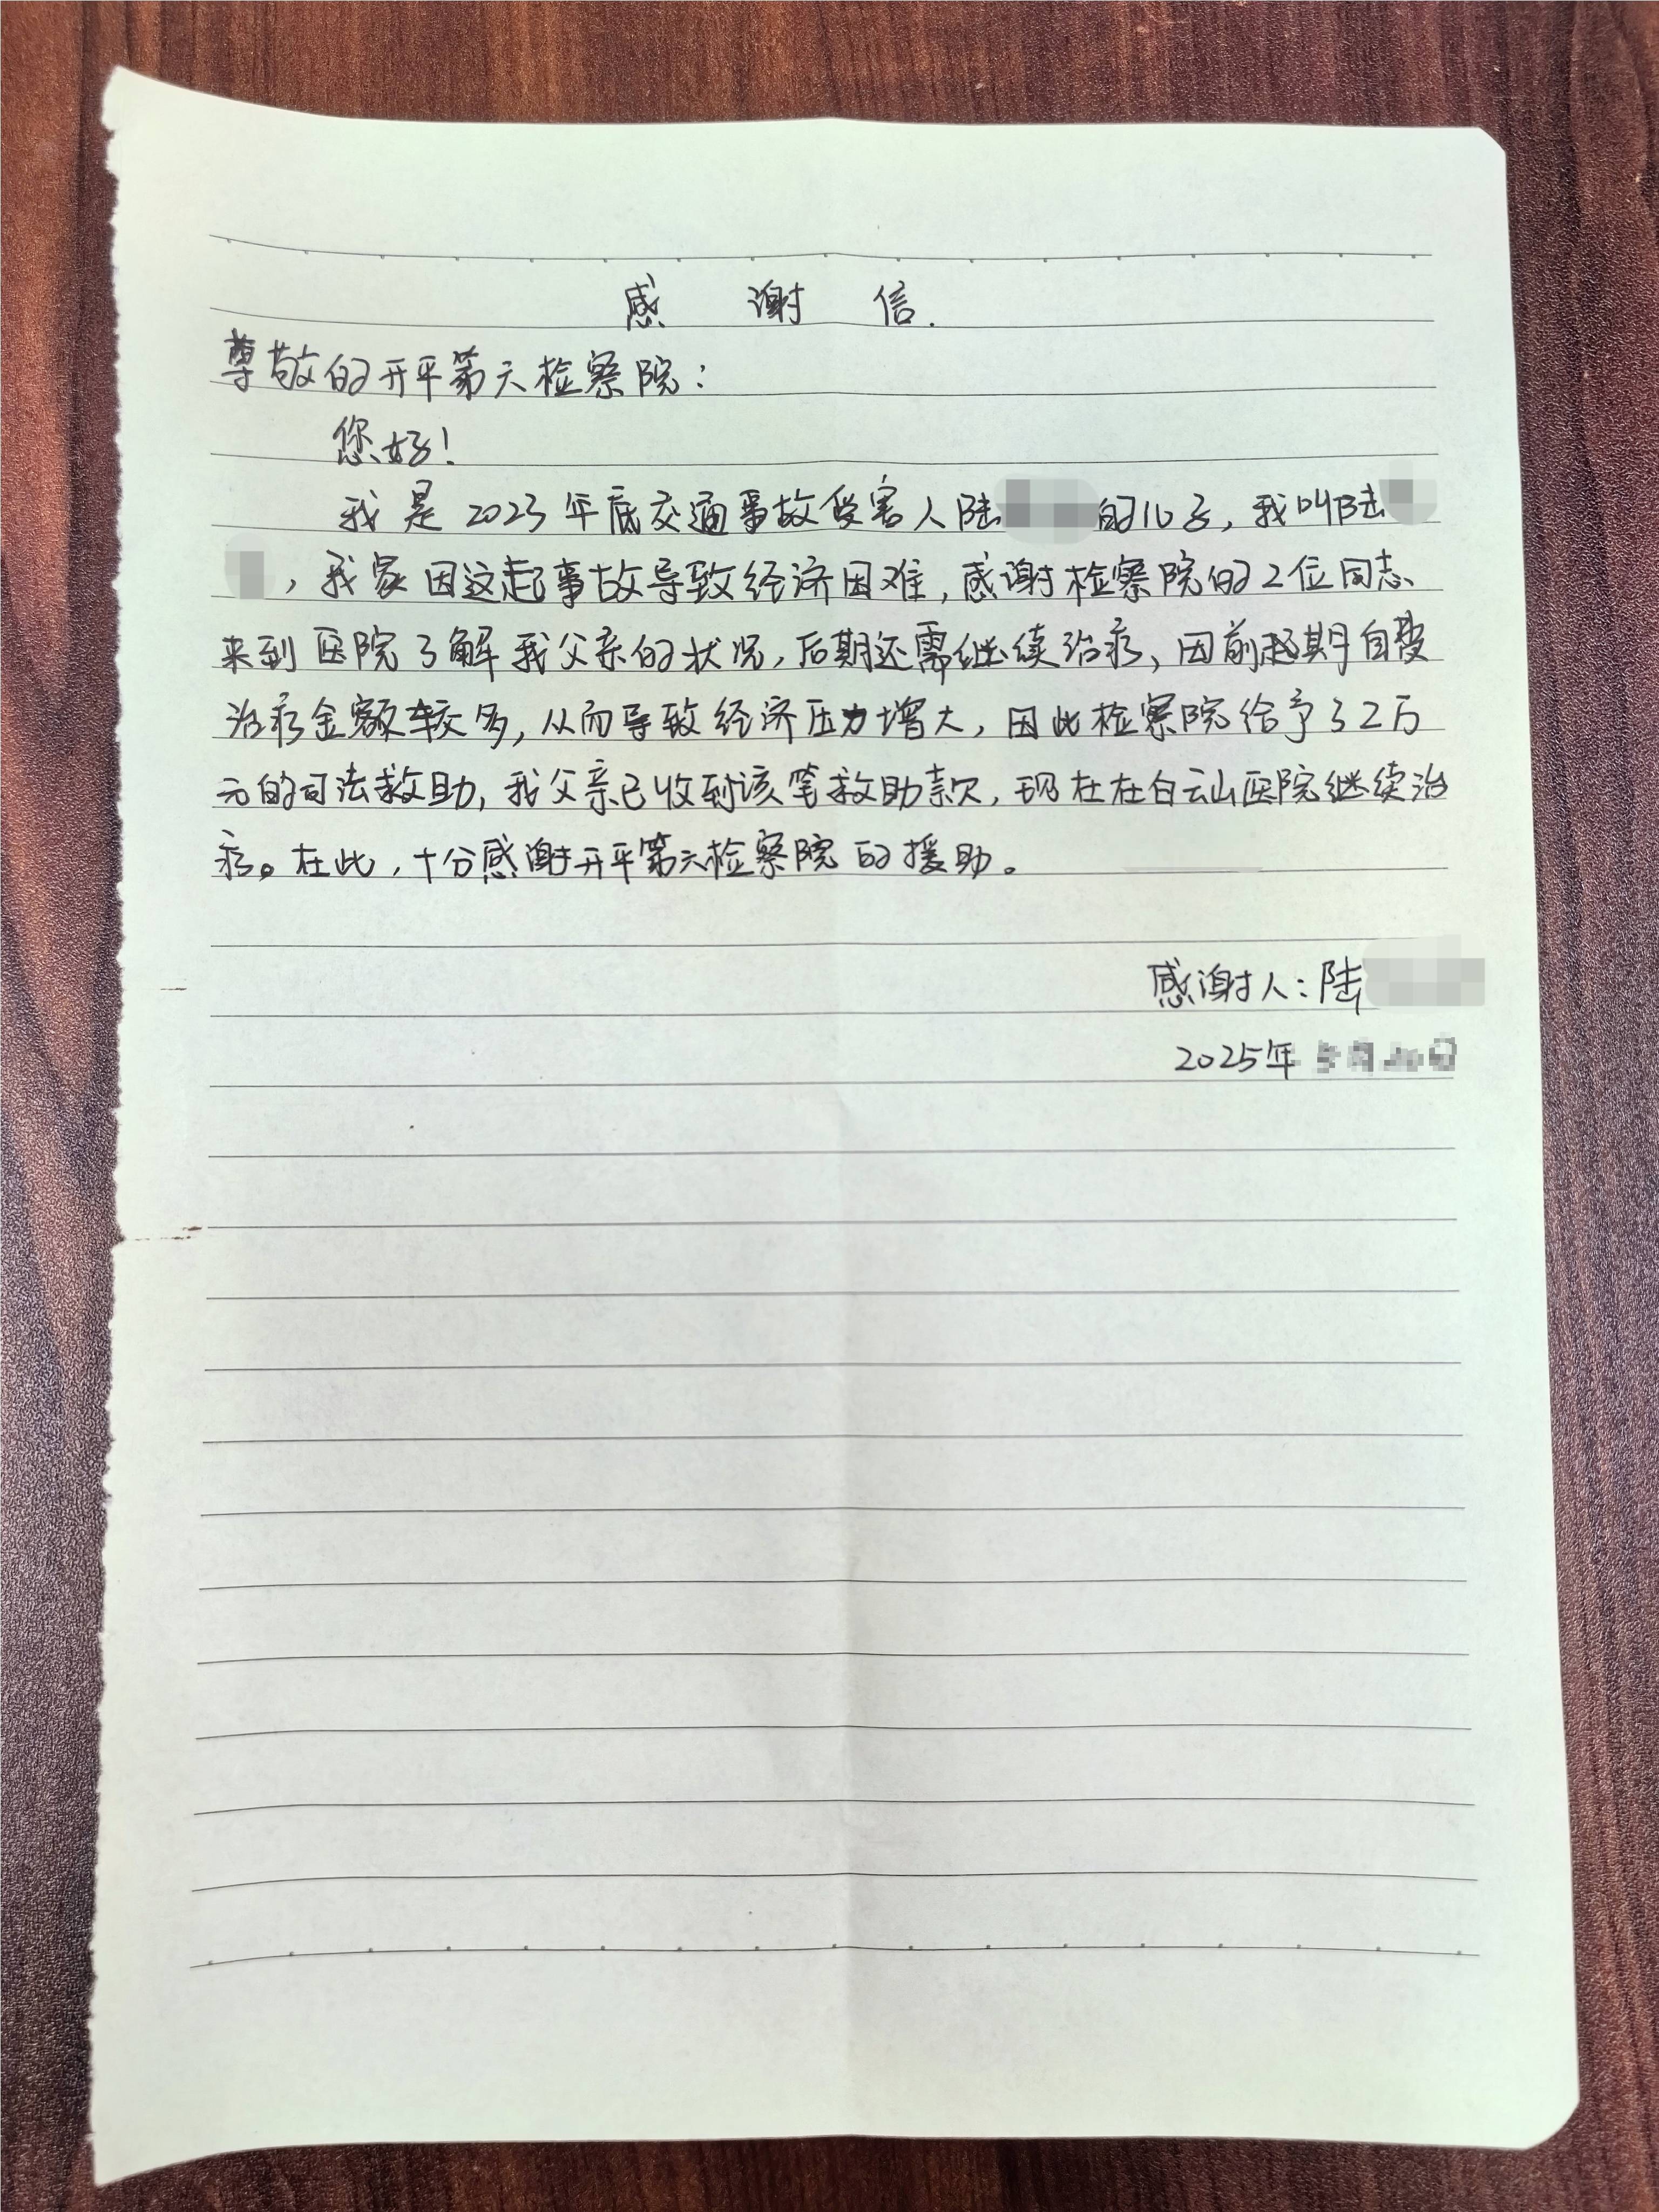 感谢信.
尊敬的开平第六检察院：
您好！
我是2023年底交通事故受害人陆的儿子，我叫陆
，我家因这起事故导致经济困难，感谢检察院的2位同志
来到医院了解我父亲的状况，后期还需继续治疗，因前期自费
治疗金额较多，从而导致经济压力增大，因此检察院给予了2万
元的司法救助，我父亲已收到该笔救助款，现在在白云山医院继续治
疗。在此，十分感谢开平第六检察院的援助。
感谢人：陆
2025年